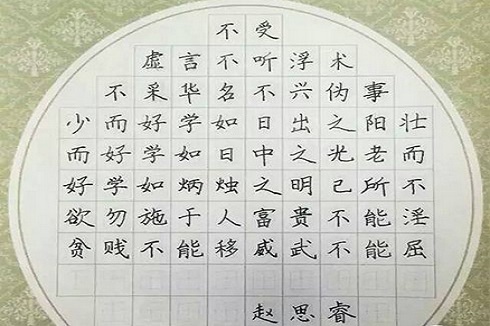 不受
虚言不听浮术
不采华名不兴伪事
少而好学如日出之阳壮
而好学如日中之光老而
好学如炳烛之明己所不
欲勿施于人富貴不能淫
贫贱不能移威武不能屈
赵思睿